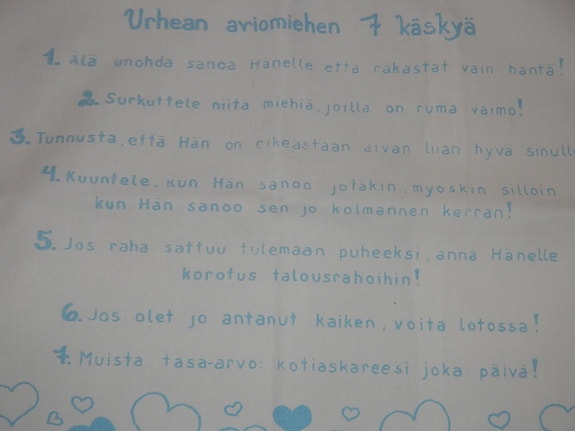 Urhean aviomiehen 7 käskyä
1. Älä unohda sanoa Hänelle että rakastat vain häntä!
2. Surkuttele niitä miehiä, joilla on ruma vaimo!
3. Tunnusta, että Hän on oikeastaan aivan liian hyvä sinulle
4. Kuuntele, kun Hän sanoo jotakin, myöskin silloin
kun Hän sanoo sen jo kolmannen kerran!
5. Jos raha sattuu tulemaan puheeksi, anna Hänelle
korotus talousrahoihin!
6. Jos olet jo antanut kaiken, voita lotossa!
7. Muista tasa-arvo: kotiaskareesi joka päivä!